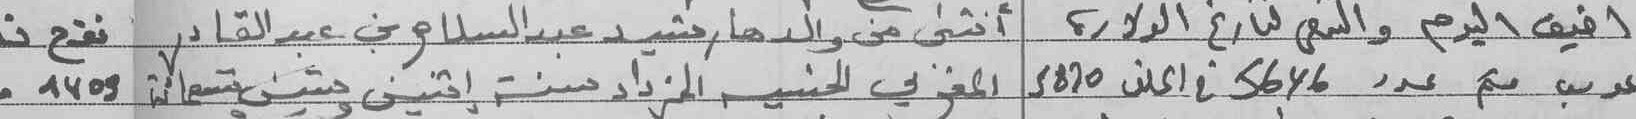 اضيف اليوم والشهر لتاريخ الولادة أنثى من والدها رشيد عبد السلام بن عبد القادر نفتح
عدد 5646 في الملف 5870 المغربي الجنسية المزداد سنة إثنين وستين وتسعمائة 1409